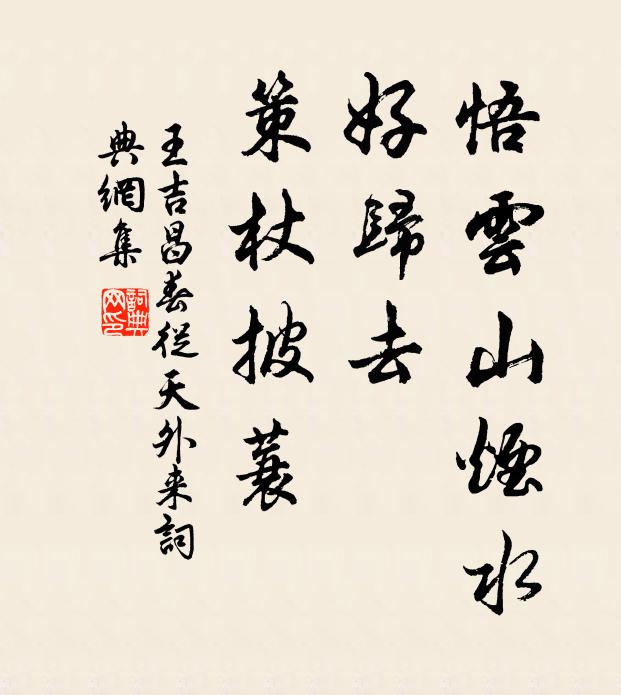 悟雲山煙水
好歸去
策杖披蓑
王吉昌春從天外来詞
典網集
詞典网印